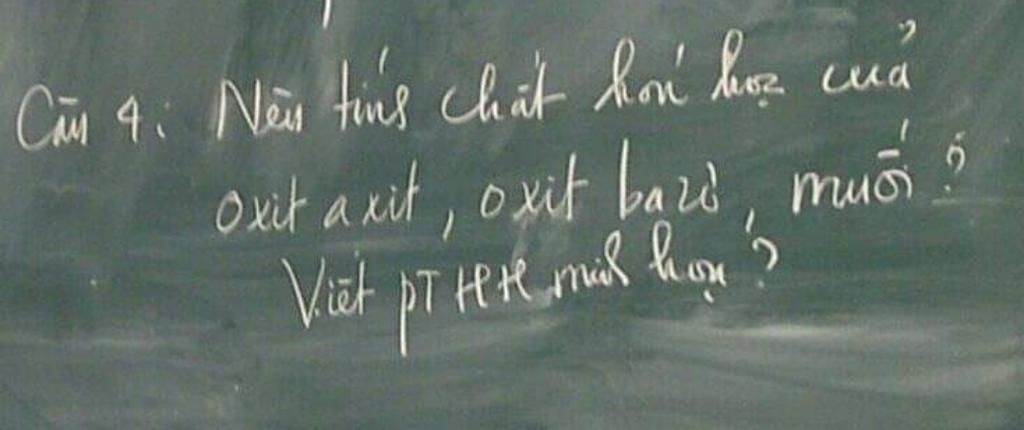 Câu 4: Nêu tính chất hoá học của
oxit axit, oxit bazơ, muối?
Viết PTHH minh họa?